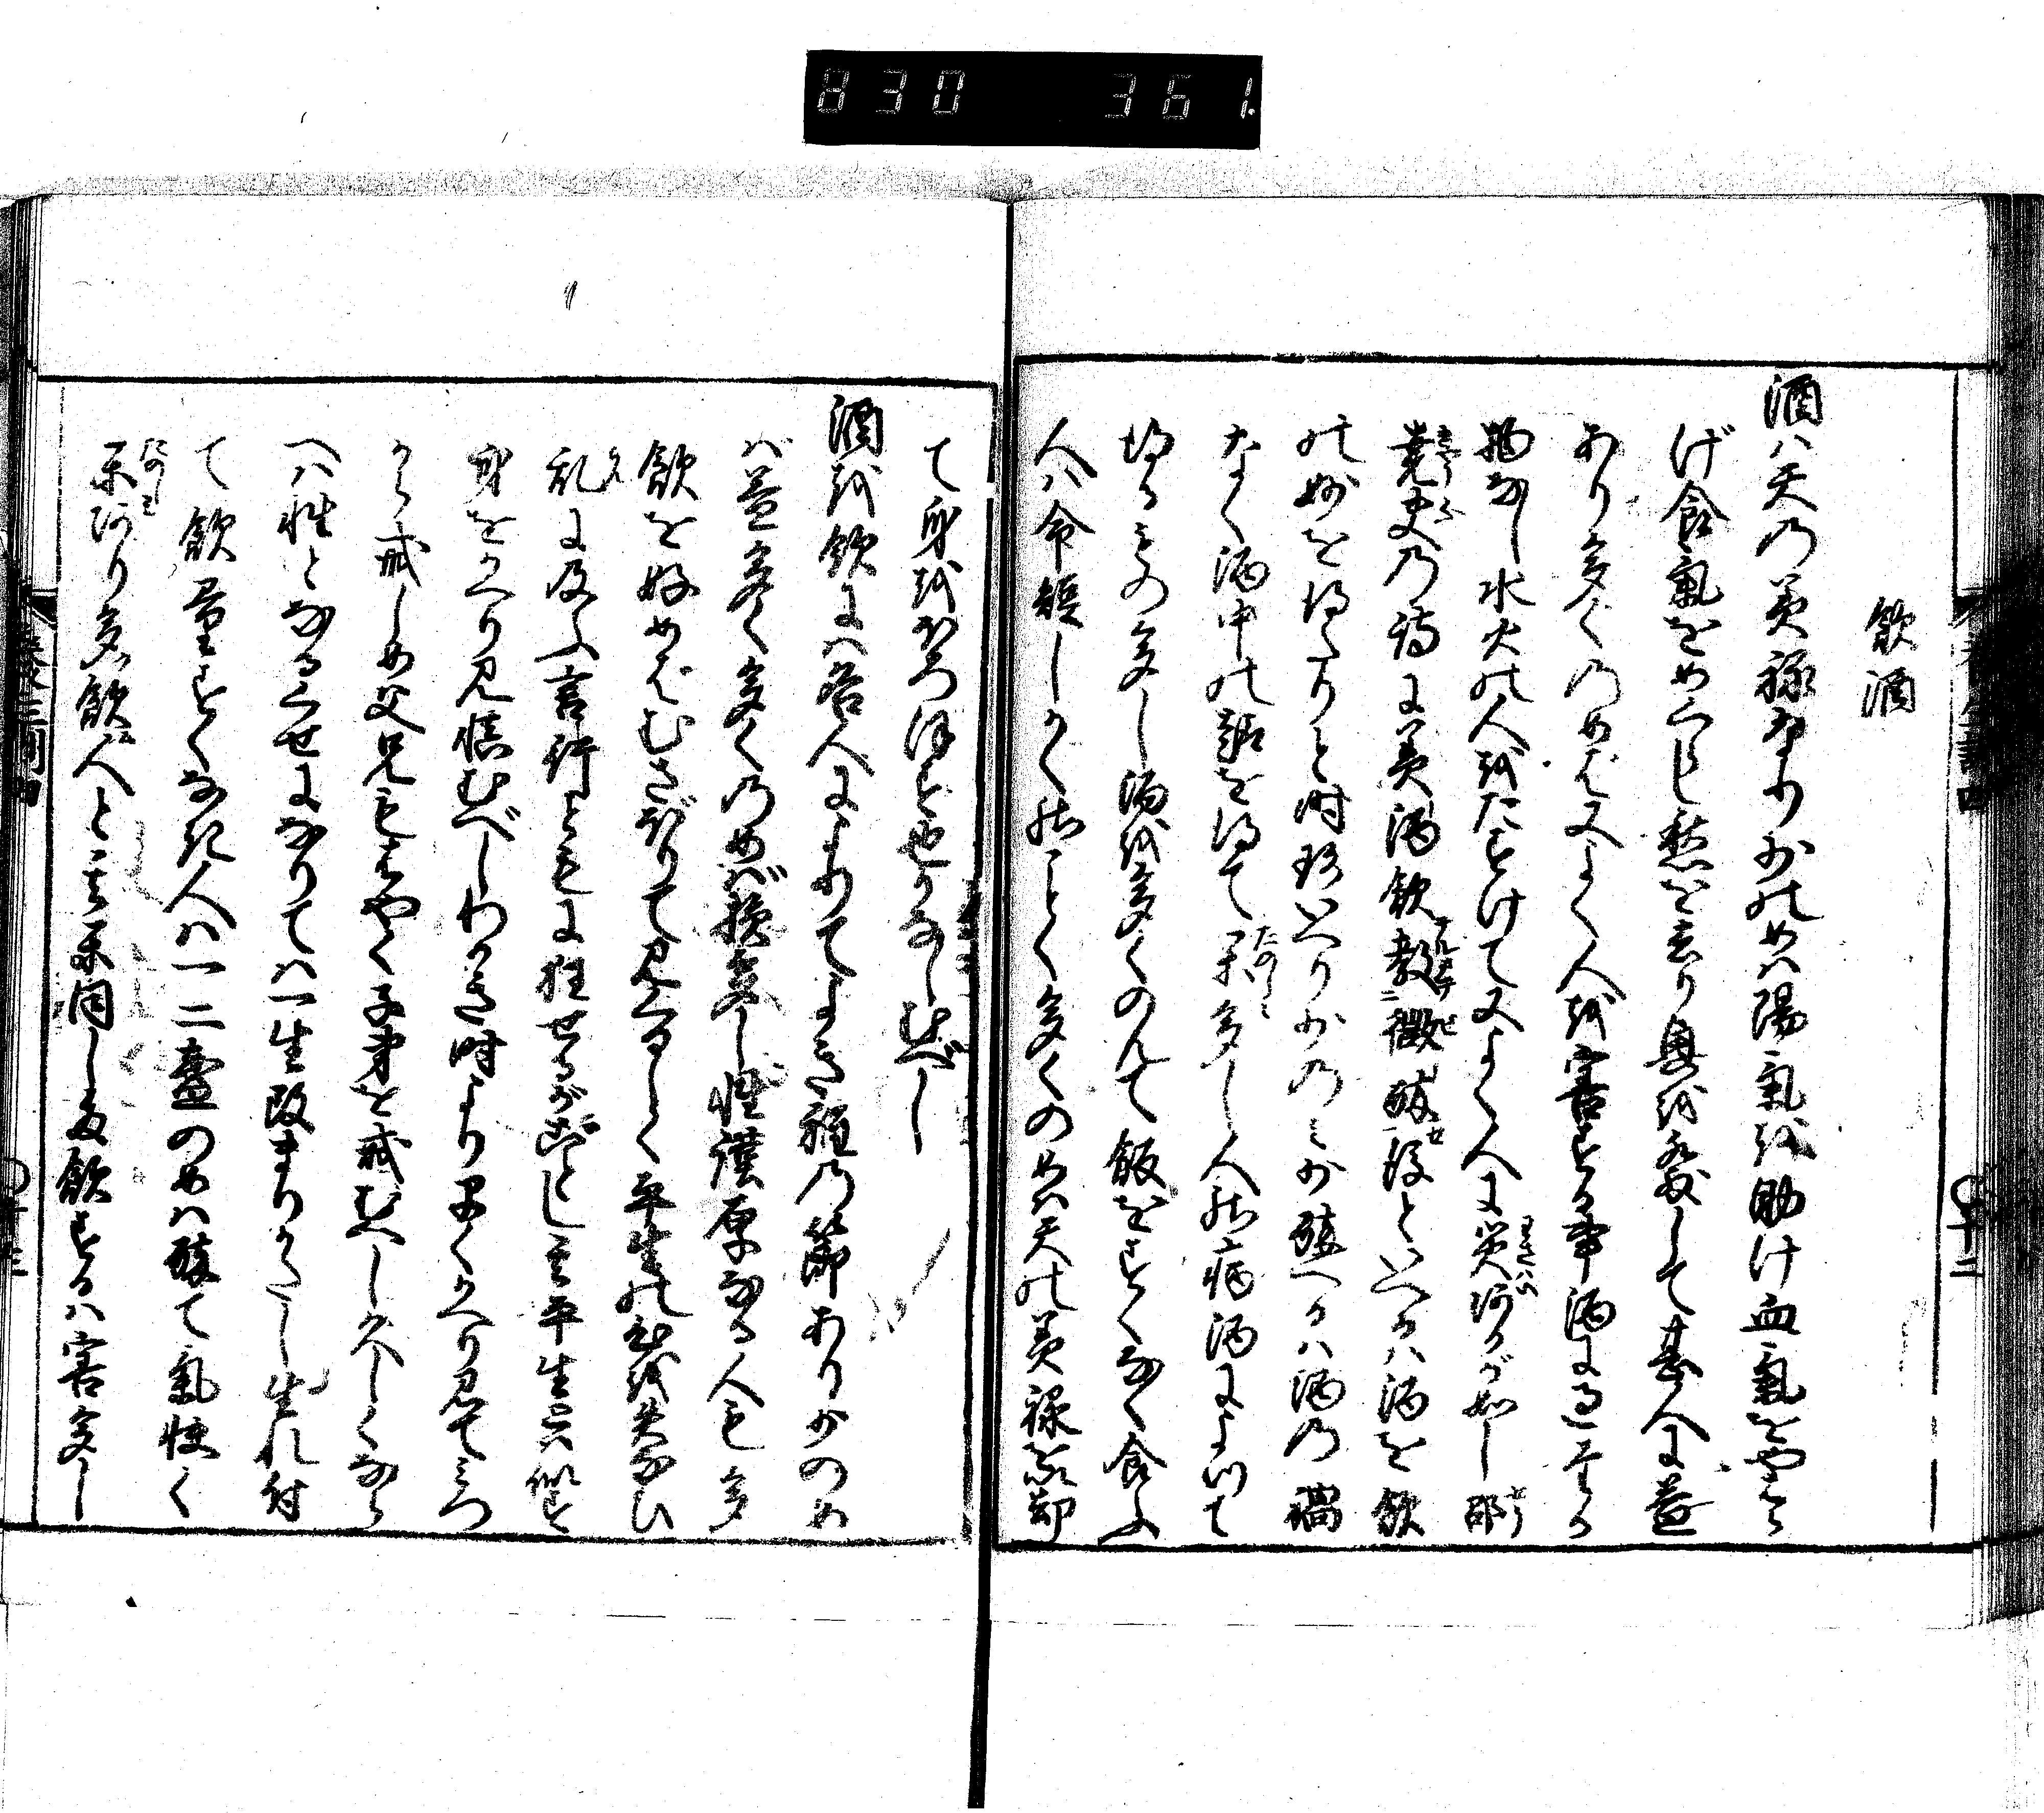 830 361
飲酒
酒ハ天乃美禄なり少のめハ陽気を助け血気をやハら
げ食気をめくらし愁を去り興を発して甚人に益
あり多くのめば又よく人を害する事酒に過たる
物なし水火の人をたすけて又よく人に災あるが如し邵
尭夫の詩に美酒飲教二微酔一後といへるハ酒を飲
の妙を得たりと時珍いへり少のミ少酔へるハ酒の禍
なく酒中の趣を得て楽多し人の病酒によつて
得るもの多し酒を多くのんで飯をすくなく食ふ
人ハ命短しかくのことく多くのめハ天の美禄を以却
て身をほろほす也かなしむべし
酒を飲にハ各人によりてよき程の節あり少のめ
ば益多く多くのめば損多し性謹厚なる人も多
飲を好めばむさぼりて見くるしく平生の心を失なひ
乱に及ふ言行ともに狂せるがごとし其平生とハ似す
身をかへり見慎むべしわかき時より早くかへり見てみつ
から戒しめ父兄もはやく子弟を戒むへし久しくなら
へハ性となるくせになりてハ一生改まりかたし生れ付
て飲量すくなき人ハ一二盞のめハ酔て気快く
楽あり多飲人と其楽同し多飲するハ害多し